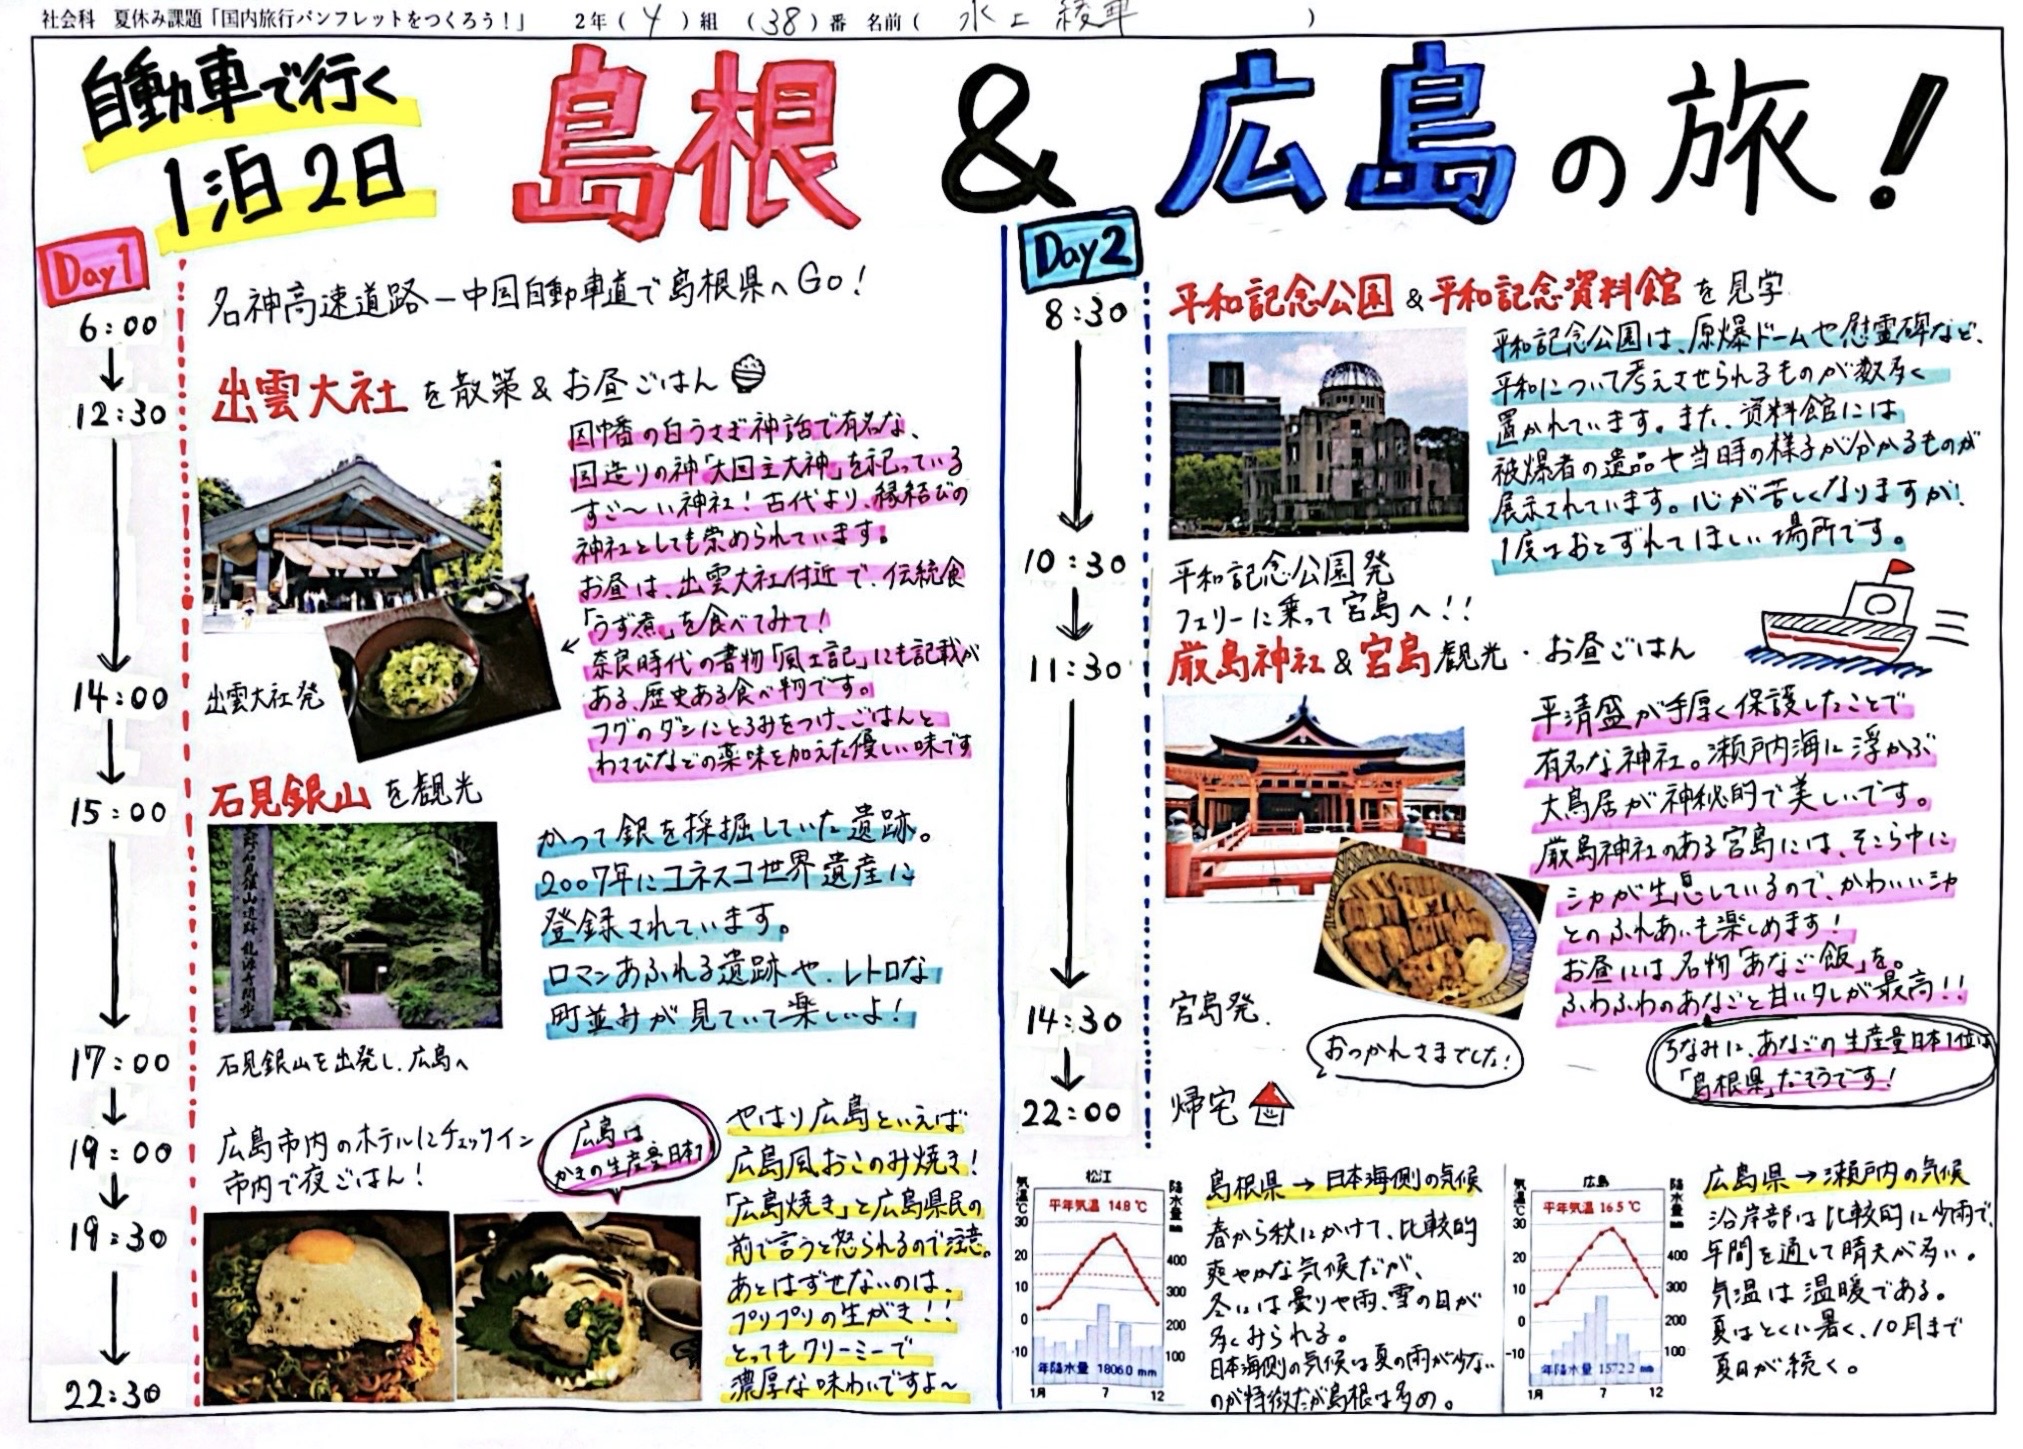 社会科 夏休み課題「国内旅行パンフレットをつくろう!」 2年(4)組 (38)番 名前(水上綾
自動車で行く
1泊2日
島根&広島の旅!
Day1
6:00
名神高速道路−中国自動車道で島根県へGo!
12:30
出雲大社を散策&お昼ごはん
因幡の白うさぎ神話で有名な、
国造りの神「大国主大神」を祀っている
すご〜い神社!古代より、縁結びの
神社としても崇められています。
お昼は、出雲大社付近で、伝統食
「うず煮」を食べてみて!
奈良時代の書物「風土記」にも記載が
ある、歴史ある食べ物です。
フグのダシにとろみをつけ、ごはんと
わさびなどの薬味を加えた優しい味です
14:00
出雲大社発
15:00
石見銀山を観光
かつて銀を採掘していた遺跡。
2007年にユネスコ世界遺産に
登録されています。
ロマンあふれる遺跡や、レトロな
町並みが見ていて楽しいよ!
17:00
石見銀山を出発し、広島へ
19:00
広島市内のホテルにチェックイン
市内で夜ごはん!
19:30
広島は
かきの生産量日本1
やはり広島といえば
広島風おこのみ焼き!
「広島焼き」と広島県民の
前で言うと怒られるので注意。
あとはずせないのは、
プリプリの生がき!!
とってもクリーミーで
濃厚な味わいですよ〜
22:30
Day2
8:30
平和記念公園&平和記念資料館を見学
平和記念公園は、原爆ドームや慰霊碑など、
平和について考えさせられるものが数多く
置かれています。また、資料館には
被爆者の遺品や当時の様子が分かるものが
展示されています。心が苦しくなりますが、
1度はおとずれてほしい場所です。
10:30
平和記念公園発
フェリーに乗って宮島へ!!
11:30
厳島神社&宮島観光・お昼ごはん
平清盛が手厚く保護したことで
有名な神社。瀬戸内海に浮かぶ
大鳥居が神秘的で美しいです。
厳島神社のある宮島には、そこら中に
シカが生息しているので、かわいいシカ
とのふれあいも楽しめます!
お昼には名物「あなご飯」を。
ふわふわのあなごと甘いタレが最高!!
ちなみに、あなごの生産量日本1位は
「島根県」だそうです!
14:30
宮島発
おつかれさまでした!
22:00
帰宅
気温℃
松江
降水量mm
平年気温 14.8℃
30
20
10
0
-10
400
300
200
100
年降水量 1806.0 mm
1月 7 12
島根県→日本海側の気候
春から秋にかけて、比較的
爽やかな気候だが、
冬には曇りや雨、雪の日が
多くみられる。
日本海側の気候は夏の雨が少ない
のが特徴だが島根は多め。
気温℃
広島
降水量mm
平年気温 16.5℃
30
20
10
0
-10
400
300
200
100
年降水量 1572.2 mm
1月 7 12
広島県→瀬戸内の気候
沿岸部は比較的に少雨で、
年間を通して晴天が多い。
気温は温暖である。
夏はとくに暑く、10月まで
夏日が続く。